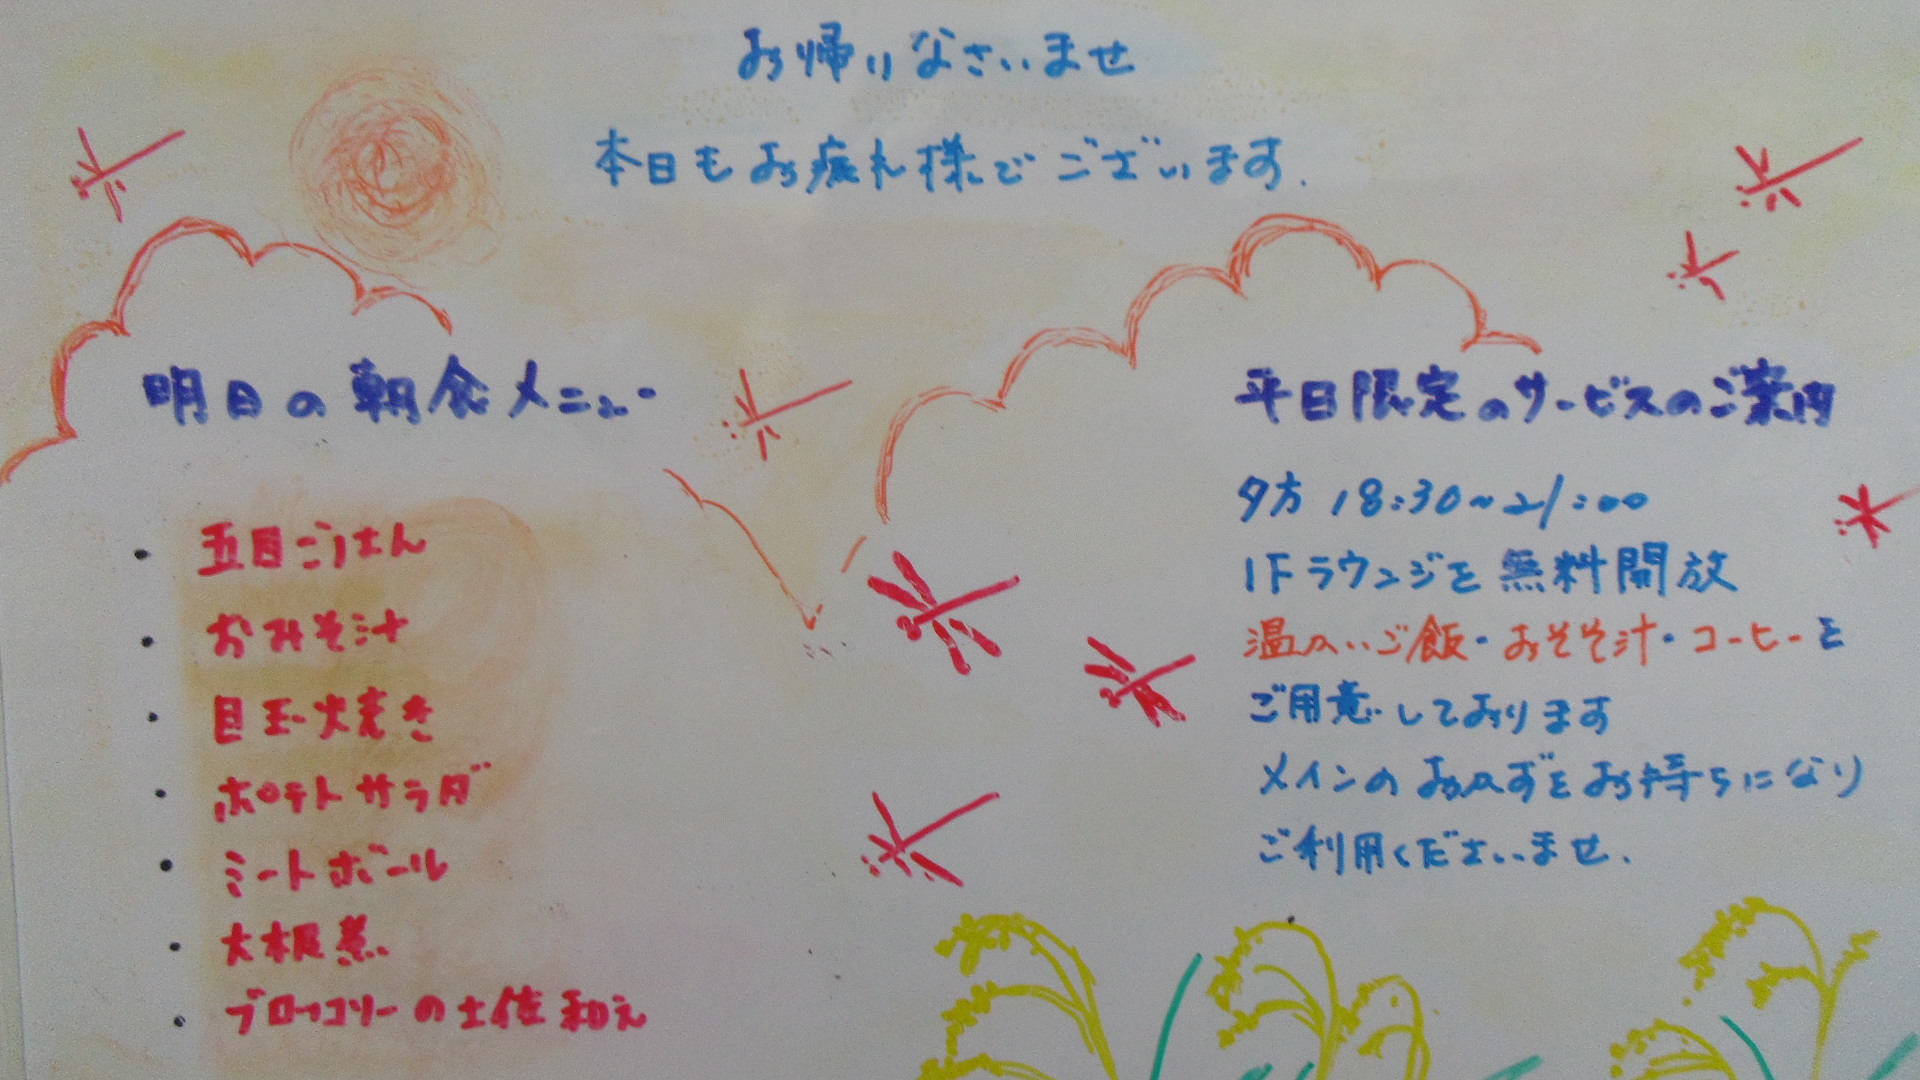 お帰りなさいませ
本日もお疲れ様でございます.
明日の朝食メニュー
・五目ごはん
・おみそ汁
・目玉焼き
・ポテトサラダ
・ミートボール
・大根煮
・ブロッコリーの土佐和え
平日限定のサービスのご案内
夕方 18:30~21:00
1Fラウンジを無料開放
温かいご飯・おそそ汁・コーヒーを
ご用意しております
メインのおかずをお持ちになり
ご利用くださいませ.